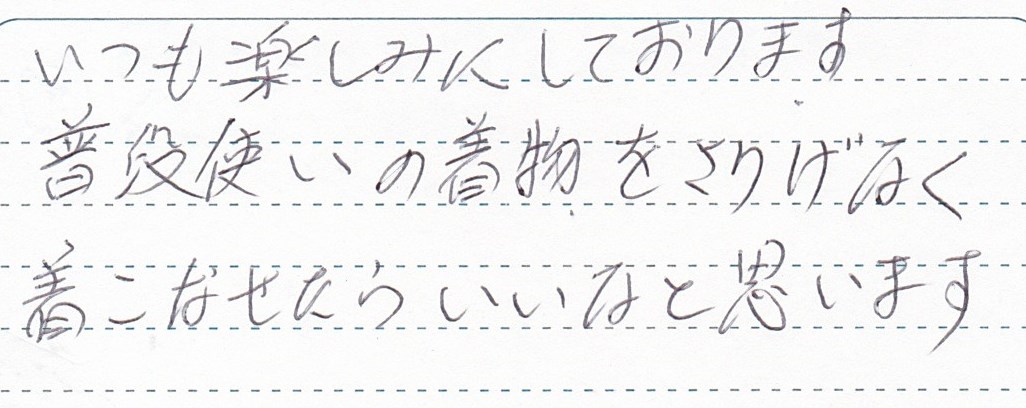 いつも楽しみにしております
普段使いの着物をさりげなく
着こなせたらいいなと思います